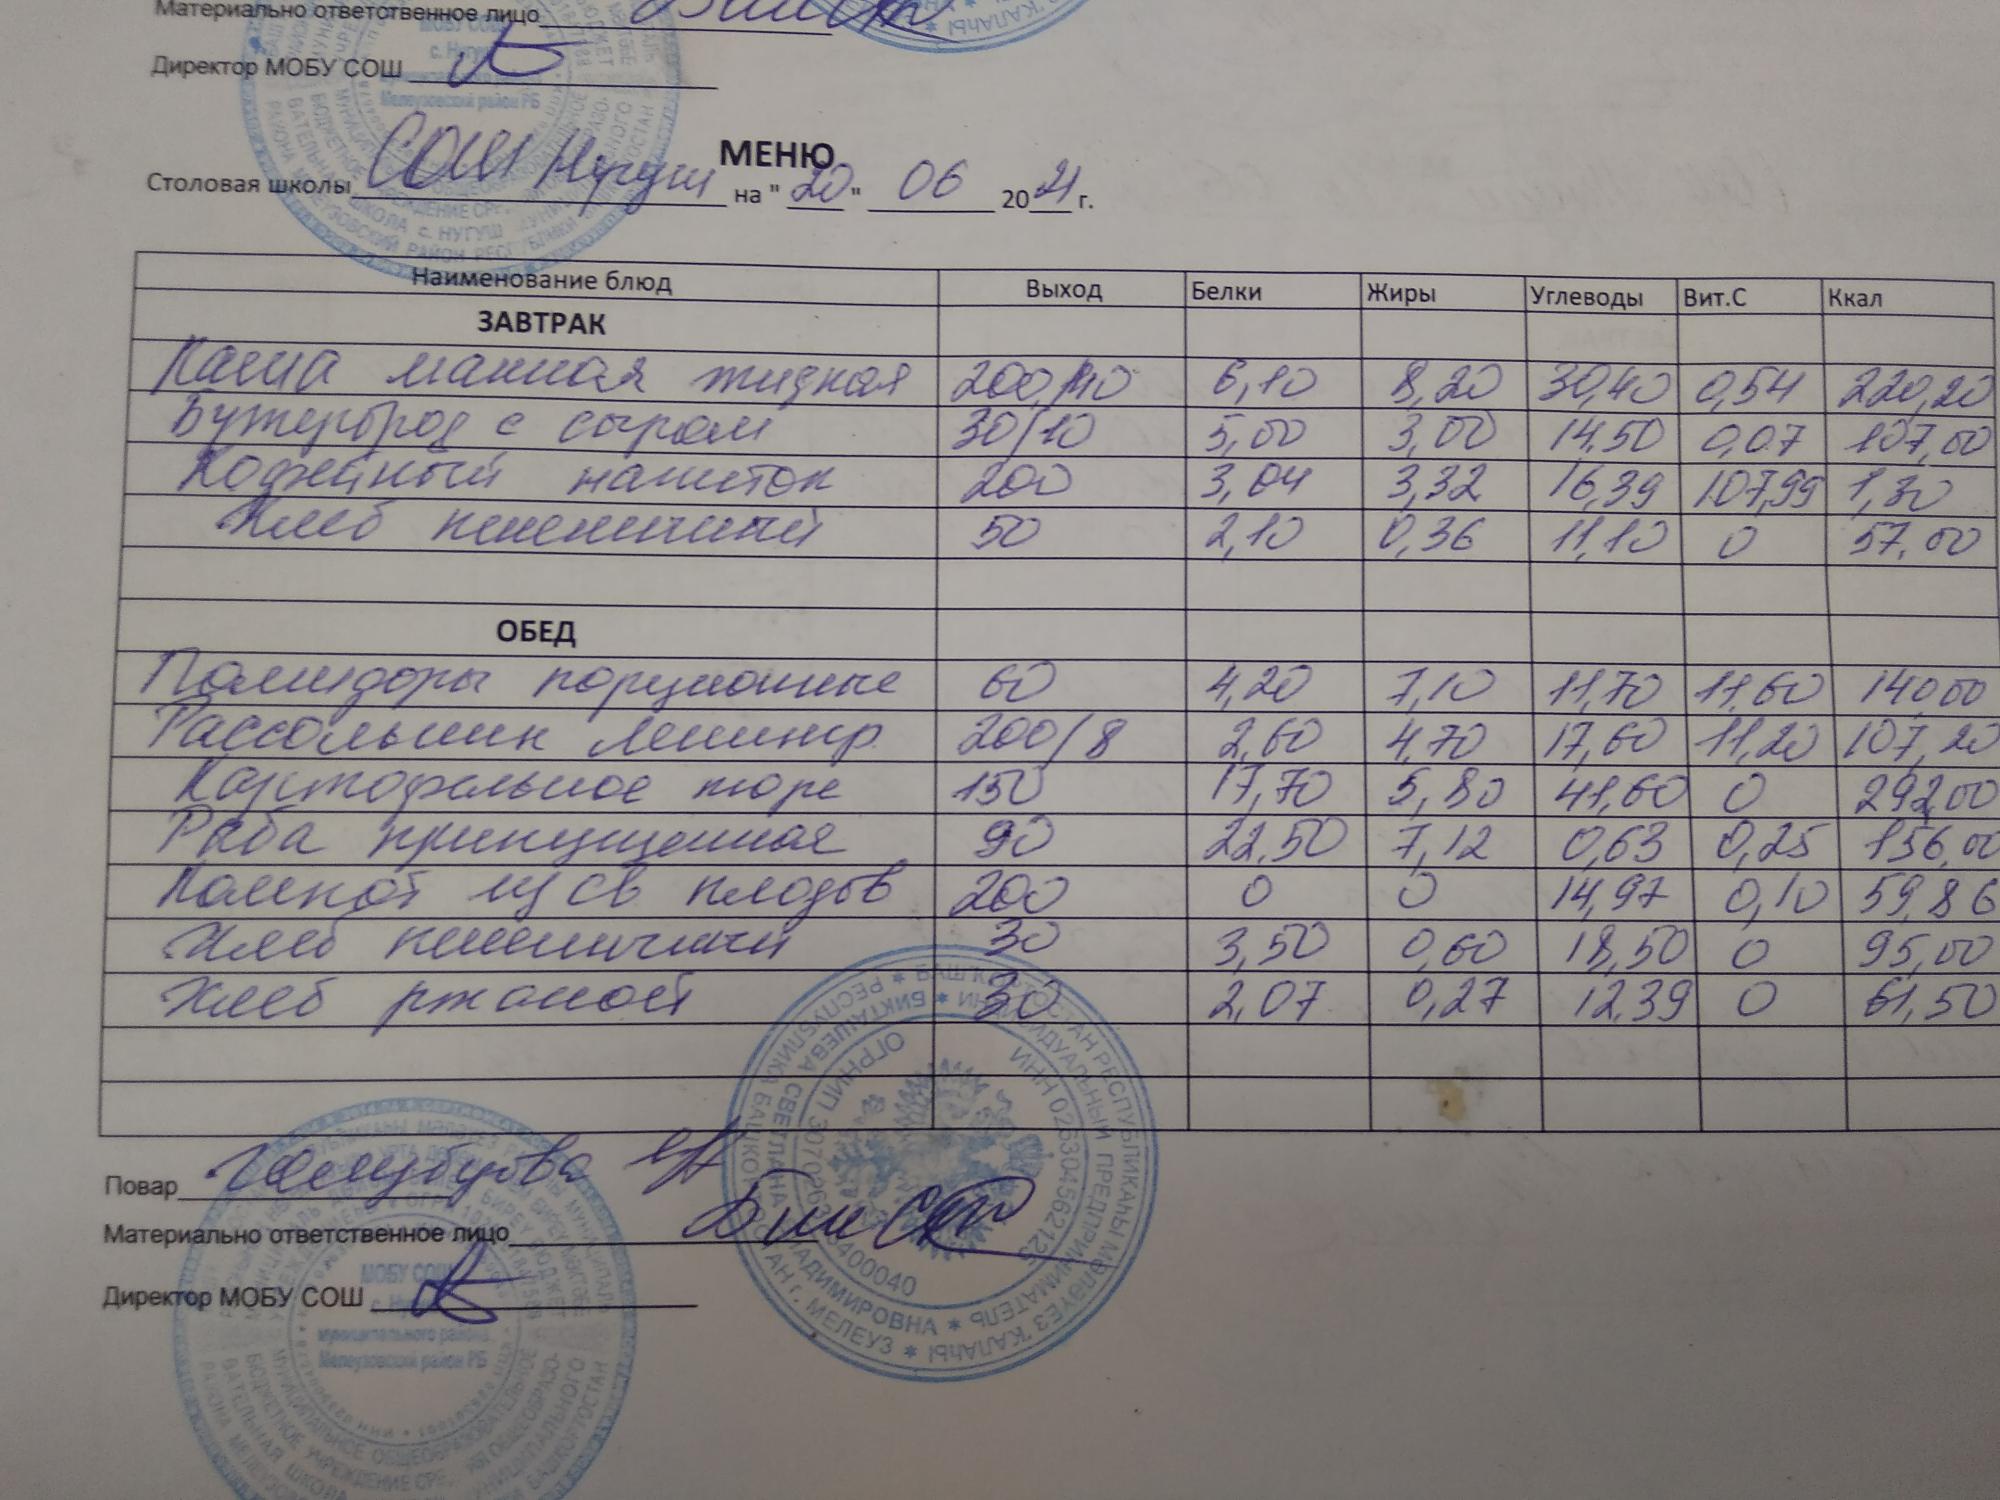 Материально ответственное лицо
Директор МОБУ СОШ
МЕНЮ
Столовая школы СОШ Нугуш на "20" 06 2021 г.
Наименование блюд Выход Белки Жиры Углеводы Вит.С Ккал
ЗАВТРАК
Каша манная жидкая 200/10 6,10 8,20 30,40 0,54 220,20
Бутерброд с сыром 30/10 5,00 3,00 14,50 0,07 107,00
Кофейный напиток 200 3,04 3,32 16,39 107,99 1,30
Хлеб пшеничный 50 2,10 0,36 11,10 0 57,00
ОБЕД
Помидоры порционные 60 4,20 7,10 11,70 11,60 140,00
Рассольник ленингр. 200/8 2,60 4,70 17,60 11,20 107,20
Картофельное пюре 150 17,70 5,80 41,60 0 292,00
Рыба припущенная 90 22,50 7,12 0,63 0,25 156,00
Компот из св плодов 200 0 0 14,97 0,10 59,86
Хлеб пшеничный 30 3,50 0,60 18,50 0 95,00
Хлеб ржаной 30 2,07 0,27 12,39 0 61,50
Повар
Материально ответственное лицо
Директор МОБУ СОШ
МОБУ СОШ
с. Нугуш
муниципального района
Мелеузовский район РБ